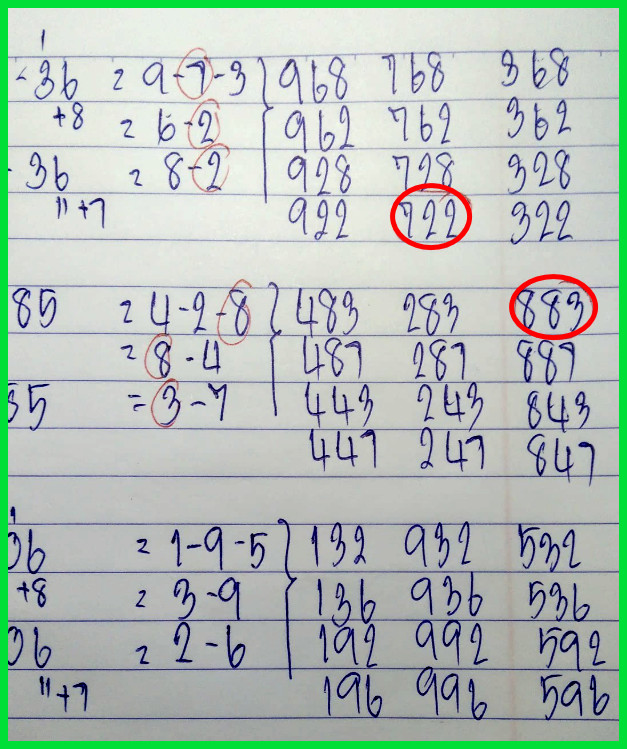 1
-36 = 9-7-3 } 968 768 368
+8 = 6-2 962 762 362
-36 = 8-2 928 728 328
"+7 922 722 322
85 = 4-2-8 } 483 283 883
= 8-4 487 287 887
35 = 3-7 443 243 843
447 247 847
36 = 1-9-5 } 132 932 532
+8 = 3-9 136 936 536
36 = 2-6 192 992 592
"+7 196 996 596